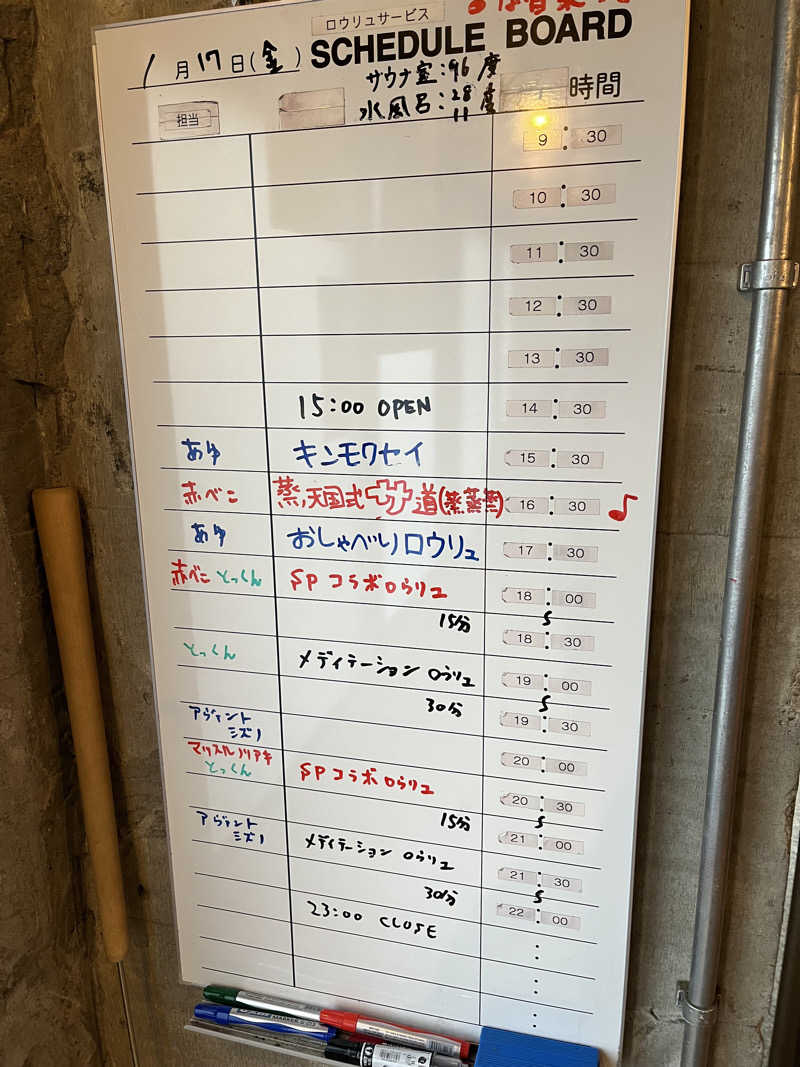 ロウリュサービス
SCHEDULE BOARD
1月17日(金)
サウナ室:96度
水風呂:28度
11
担当
時間
9:30
10:30
11:30
12:30
13:30
15:00 OPEN 14:30
あゆ キンモクセイ 15:30
赤べこ 蒸天国式 道 16:30 ♪
あゆ おしゃべりロウリュ 17:30
赤べこ とっくん SPコラボロウリュ 18:00
15分 18:30
とっくん メディテーション ロウリュ 19:00
30分 19:30
アヴァント
ミズノ
マッスルノリアキ
とっくん SPコラボロウリュ 20:00
15分 20:30
アヴァント
ミズノ メディテーション ロウリュ 21:00
30分 21:30
23:00 CLOSE 22:00